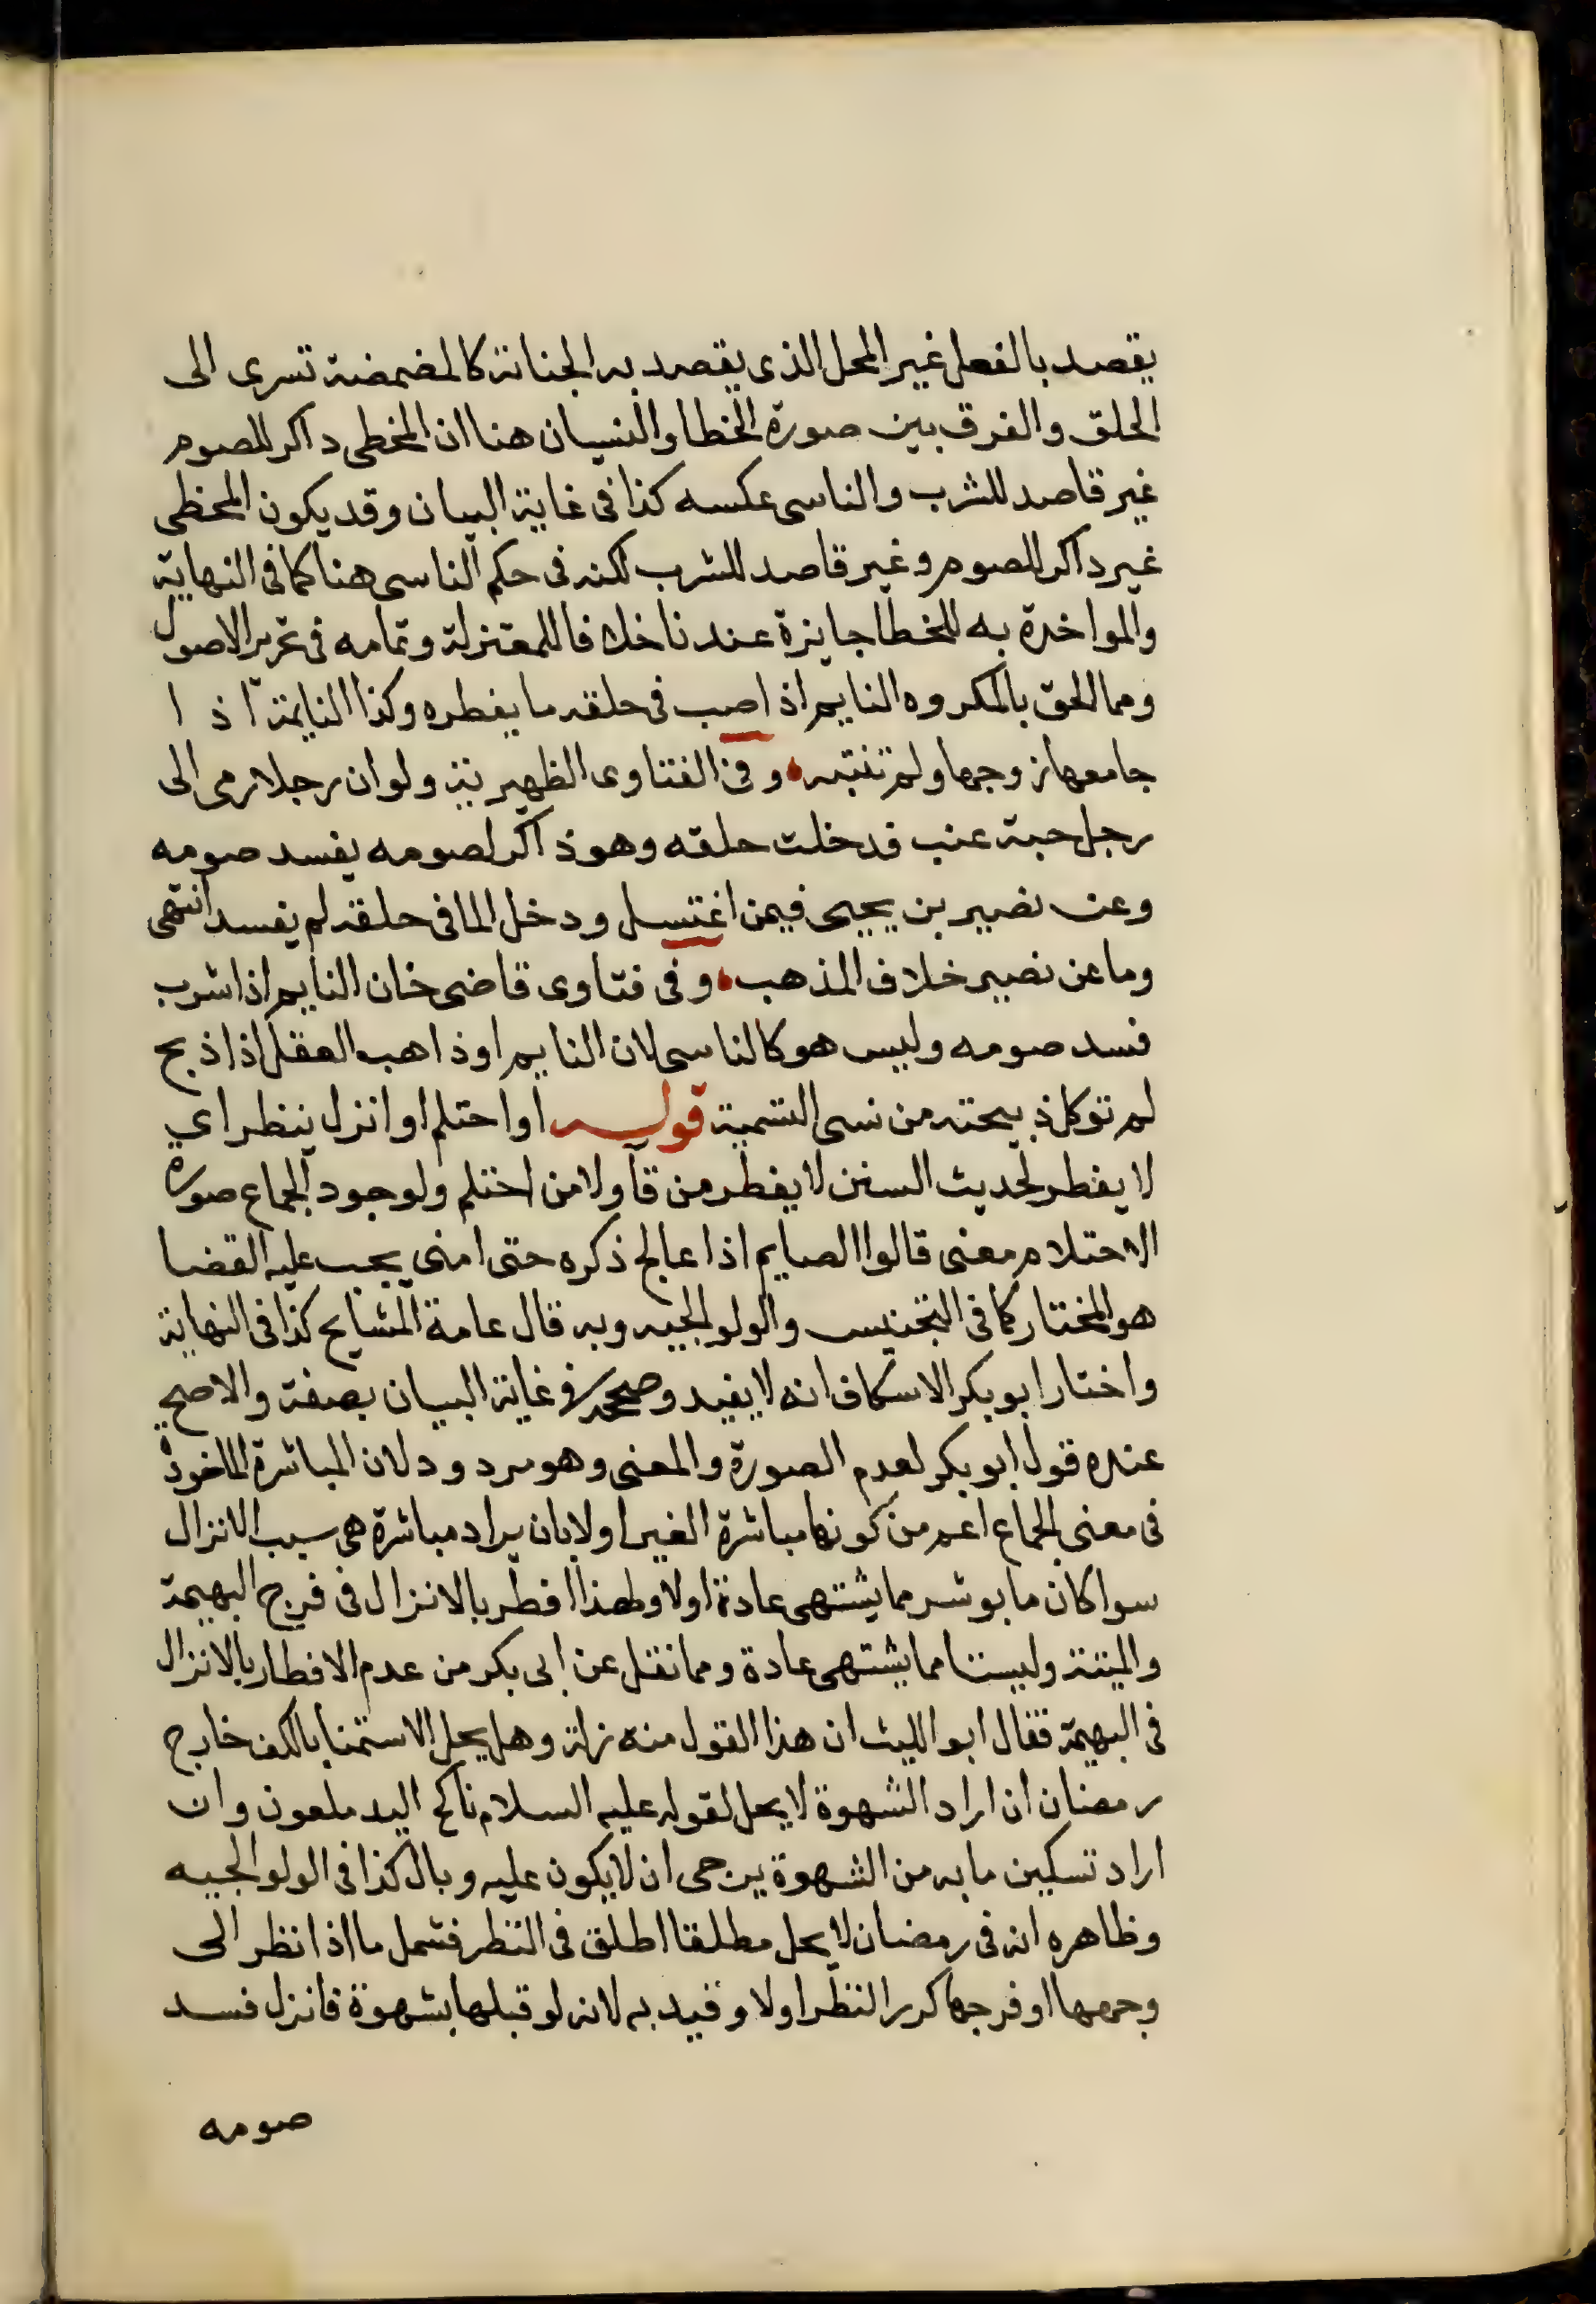 يقصد بالفعل غير المحل الذى يقصد به الجناية كالمضمضة تسرى الى
الحلق والفرق بين صورة الخطا والنسيان هنا ان المخطى داكر للصوم
غير قاصد للشرب والناسى عكسه كذا فى غاية البيان وقد يكون المخطى
غير داكر للصوم وغير قاصد للشرب لكنه فى حكم الناسى هنا كما فى النهاية
والمواخدة به للخطا جايزة عندنا خلافا للمعتزلة وتمامه فى تحرير الاصول
ومما الحق بالمكروه النايم اذا صب فى حلقه ما يفطره وكذا النايمة اذا
جامعها زوجها ولم تنتبه وفى الفتاوى الظهيرية ولو ان رجلا رمى الى
رجل حبة عنب فدخلت حلقه وهو ذاكر لصومه يفسد صومه
وعن نصير بن يحيى فيمن اغتسل ودخل الما فى حلقه لم يفسد انتهى
وما عن نصير خلاف المذهب وفى فتاوى قاضى خان النايم اذا شرب
فسد صومه وليس هو كالناسى لان النايم او ذاهب العقل اذا ذبح
لم توكل ذبيحته من نسى التسمية قوله او احتلم او انزل بنظر اي
لا يفطر لحديث السنن لا يفطر من قا ولا من احتلم ولوجود الجماع صورة
الاحتلام معنى قالوا الصايم اذا عالج ذكره حتى امنى يجب عليه القضا
هو المختار كما فى التجنيس والولوالجيه وبه قال عامة المشايح كذا فى النهاية
واختار ابو بكر الاسكاف انه لا يفيد وصححه فى غاية البيان بصفة والاصح
عنده قول ابو بكر لعدم الصورة والمعنى وهو مردود لان المباشرة الماخوذة
فى معنى الجماع اعم من كونها مباشرة الغير اولا بان يراد مباشرة هى سبب الانزال
سوا كان ما بوشر مما يشتهى عادة اولا ولهذا افطر بالانزال فى فرج البهيمة
والميتة وليستا مما يشتهى عادة ومما نقل عن ابى بكر من عدم الافطار بالانزال
فى البهيمة فقال ابو الليث ان هذا القول منه زلة وهل يحل الاستمنا بالكف خارج
رمضان ان اراد الشهوة لا يحل لقوله عليه السلام ناكح اليد ملعون وان
اراد تسكين ما به من الشهوة يرجى ان لا يكون عليه وبال كذا فى الولوالجيه
وظاهره انه فى رمضان لا يحل مطلقا اطلق فى النظر فشمل ما اذا نظر الى
وجهها او فرجها كرر النظر اولا وقيد به لانه لو قبلها بشهوة فانزل فسد
صومه